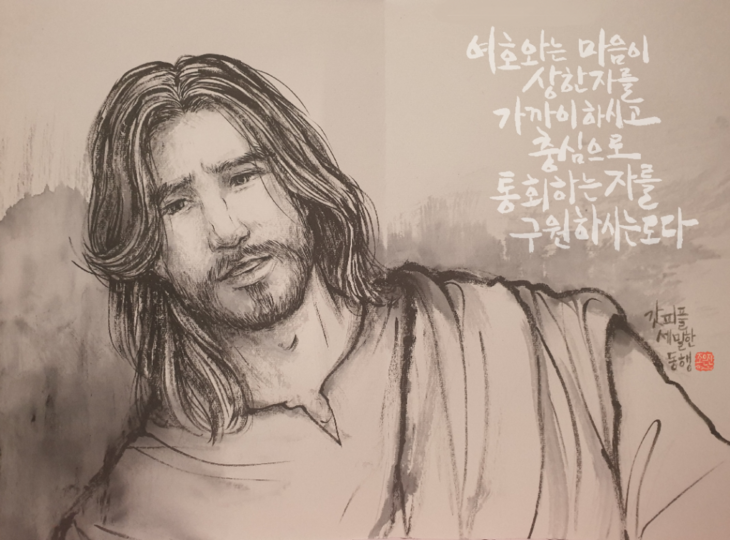 여호와는 마음이
상한 자를
가까이 하시고
중심으로
통회하는 자를
구원하시는도다
갓피플
세밀한
동행